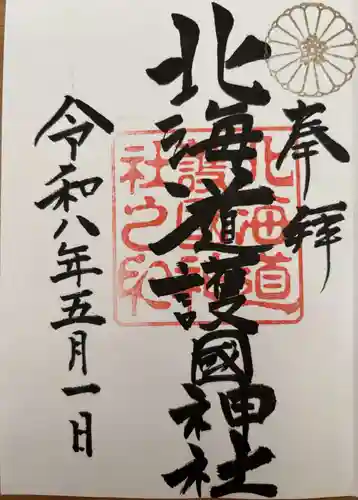 奉拝
北海道護國神社
北海道護國神社之印
令和八年五月一日